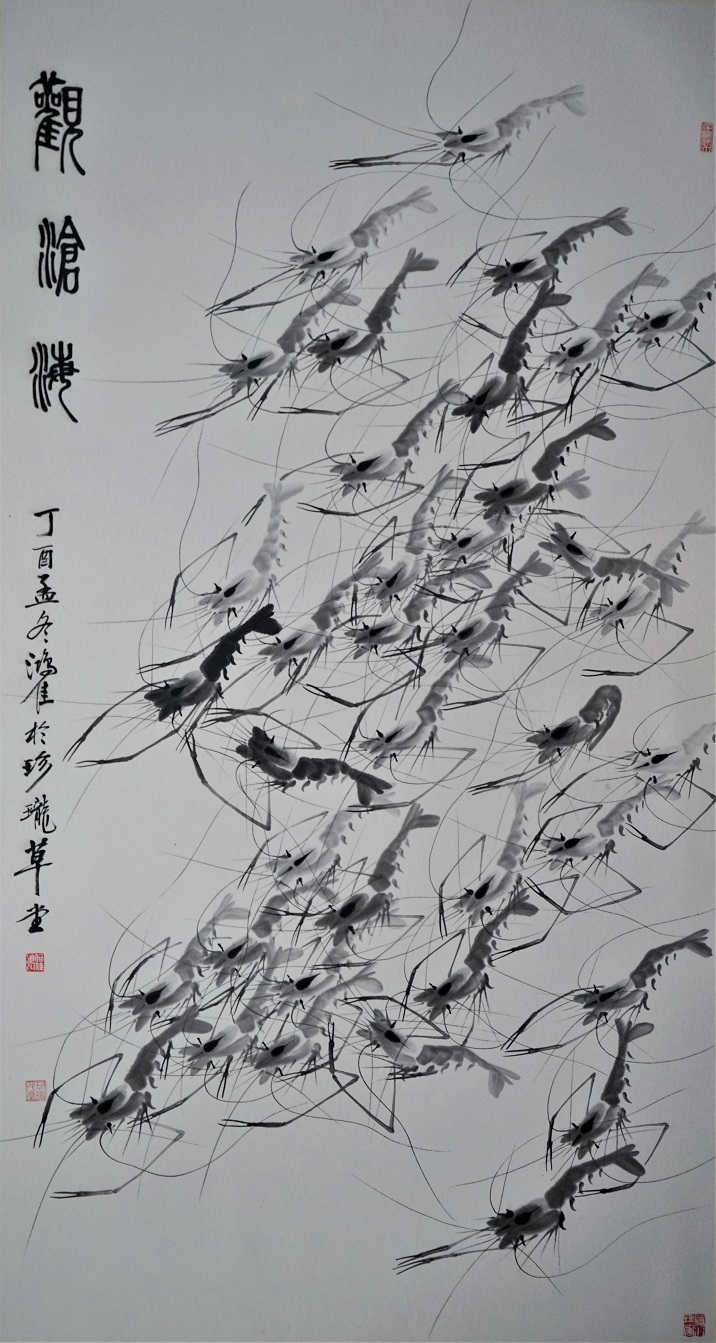 觀滄海
丁酉孟冬鴻佳於珍瓏草堂